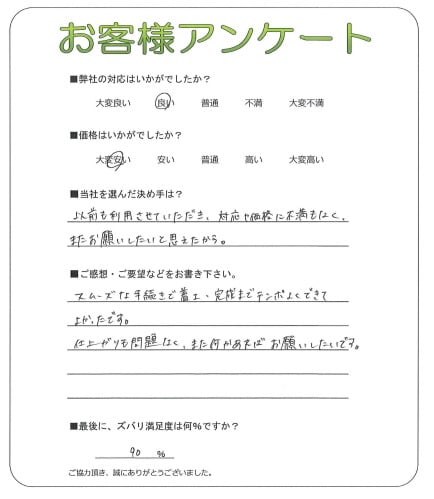 お客様アンケート
■弊社の対応はいかがでしたか？
大変良い 良い 普通 不満 大変不満
■価格はいかがでしたか？
大変安い 安い 普通 高い 大変高い
■当社を選んだ決め手は？
以前も利用させていただき、対応や価格に不満もなく、
またお願いしたいと思えたから。
■ご感想・ご要望などをお書き下さい。
スムーズな手続きで着工、完成までテンポよくできて
よかったです。
仕上がりも問題なく、また何かあればお願いしたいです。
■最後に、ズバリ満足度は何％ですか？
90 ％
ご協力頂き、誠にありがとうございました。